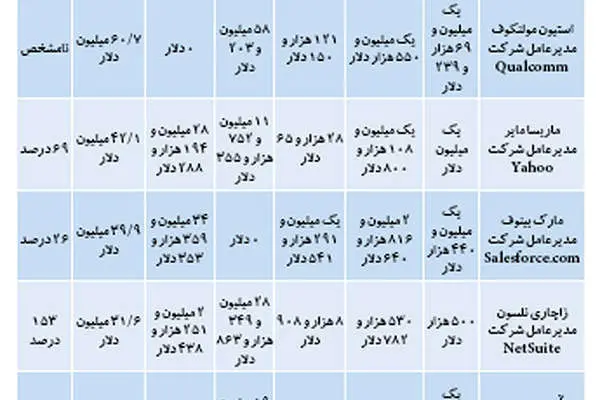 استیون مولنکوف
مدیرعامل شرکت
Qualcomm
یک
میلیون و
۶۹ هزار
و ۲۳۹
دلار
یک میلیون و
۵۵۰ هزار دلار
۱۲۱ هزار و
۱۵۰ دلار
۵۸
میلیون
و ۲۰۳
دلار
۰ دلار
۶۰/۷ میلیون
دلار
نامشخص
ماریسا مایر
مدیرعامل شرکت
Yahoo
یک
میلیون
دلار
یک میلیون و
۱۰۸ هزار و
۸۰۰ دلار
۲۸ هزار و ۶۵
دلار
۱۱ میلیون
و ۷۵۲
هزار و ۳۵۵
دلار
۲۸ میلیون و
۱۹۴ هزار و
۲۸۸ دلار
۴۲/۱ میلیون
دلار
۶۹ درصد
مارک بینوف
مدیرعامل شرکت
Salesforce.com
یک
میلیون و
۴۴۰ هزار
دلار
۲ میلیون و
۸۱۶ هزار و
۶۴۰ دلار
یک میلیون و
۲۹۱ هزار و
۵۴۱ دلار
۰ دلار
۳۴ میلیون و
۳۵۹ هزار و
۳۵۳ دلار
۳۹/۹ میلیون
دلار
۲۶ درصد
زاچاری نلسون
مدیرعامل شرکت
NetSuite
۵۰۰ هزار
دلار
۵۳۰ هزار و
۷۸۲ دلار
۸ هزار و ۹۰۸
دلار
۲۸ میلیون
و ۳۴۹
هزار و ۸۶۳
دلار
۲ میلیون و
۲۵۱ هزار و
۴۳۸ دلار
۳۱/۶ میلیون
دلار
۱۵۳
درصد
یک